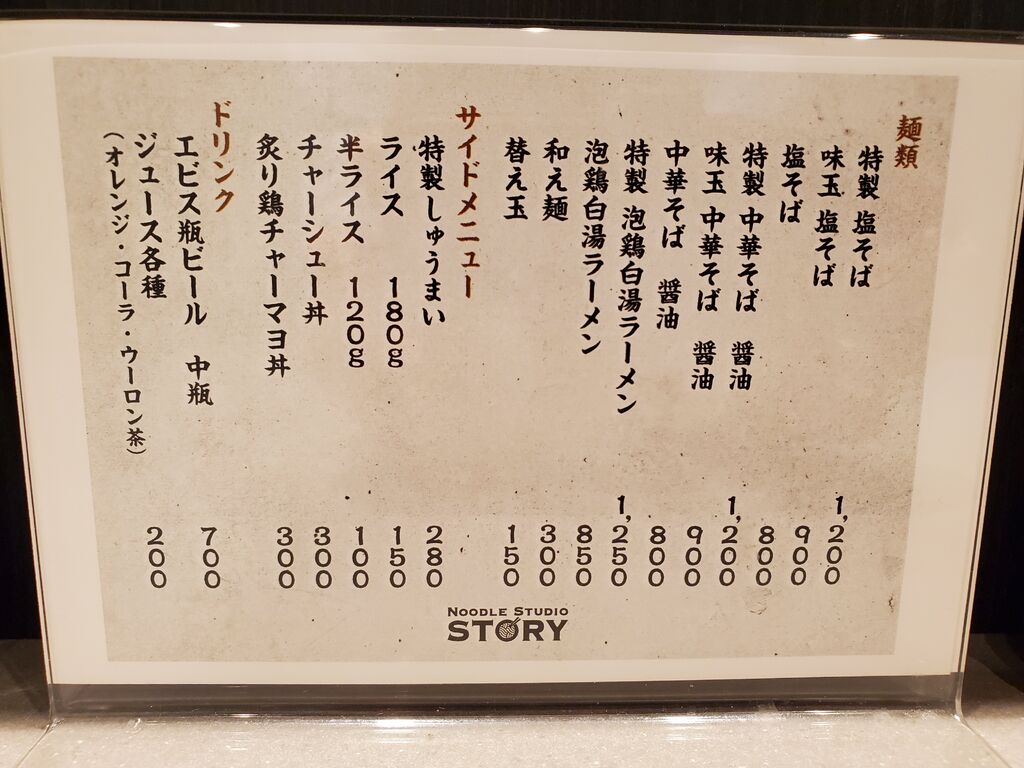 麺類
特製 塩そば 1,200
味玉 塩そば 900
塩そば 800
特製 中華そば 醤油 1,200
味玉 中華そば 醤油 900
中華そば 醤油 800
特製 泡鶏白湯ラーメン 1,250
泡鶏白湯ラーメン 850
和え麺 300
替え玉 150
サイドメニュー
特製しゅうまい 280
ライス 180g 150
半ライス 120g 100
チャーシュー丼 300
炙り鶏チャーマヨ丼 300
ドリンク
エビス瓶ビール 中瓶 700
ジュース各種 200
(オレンジ・コーラ・ウーロン茶)
NOODLE STUDIO
STORY